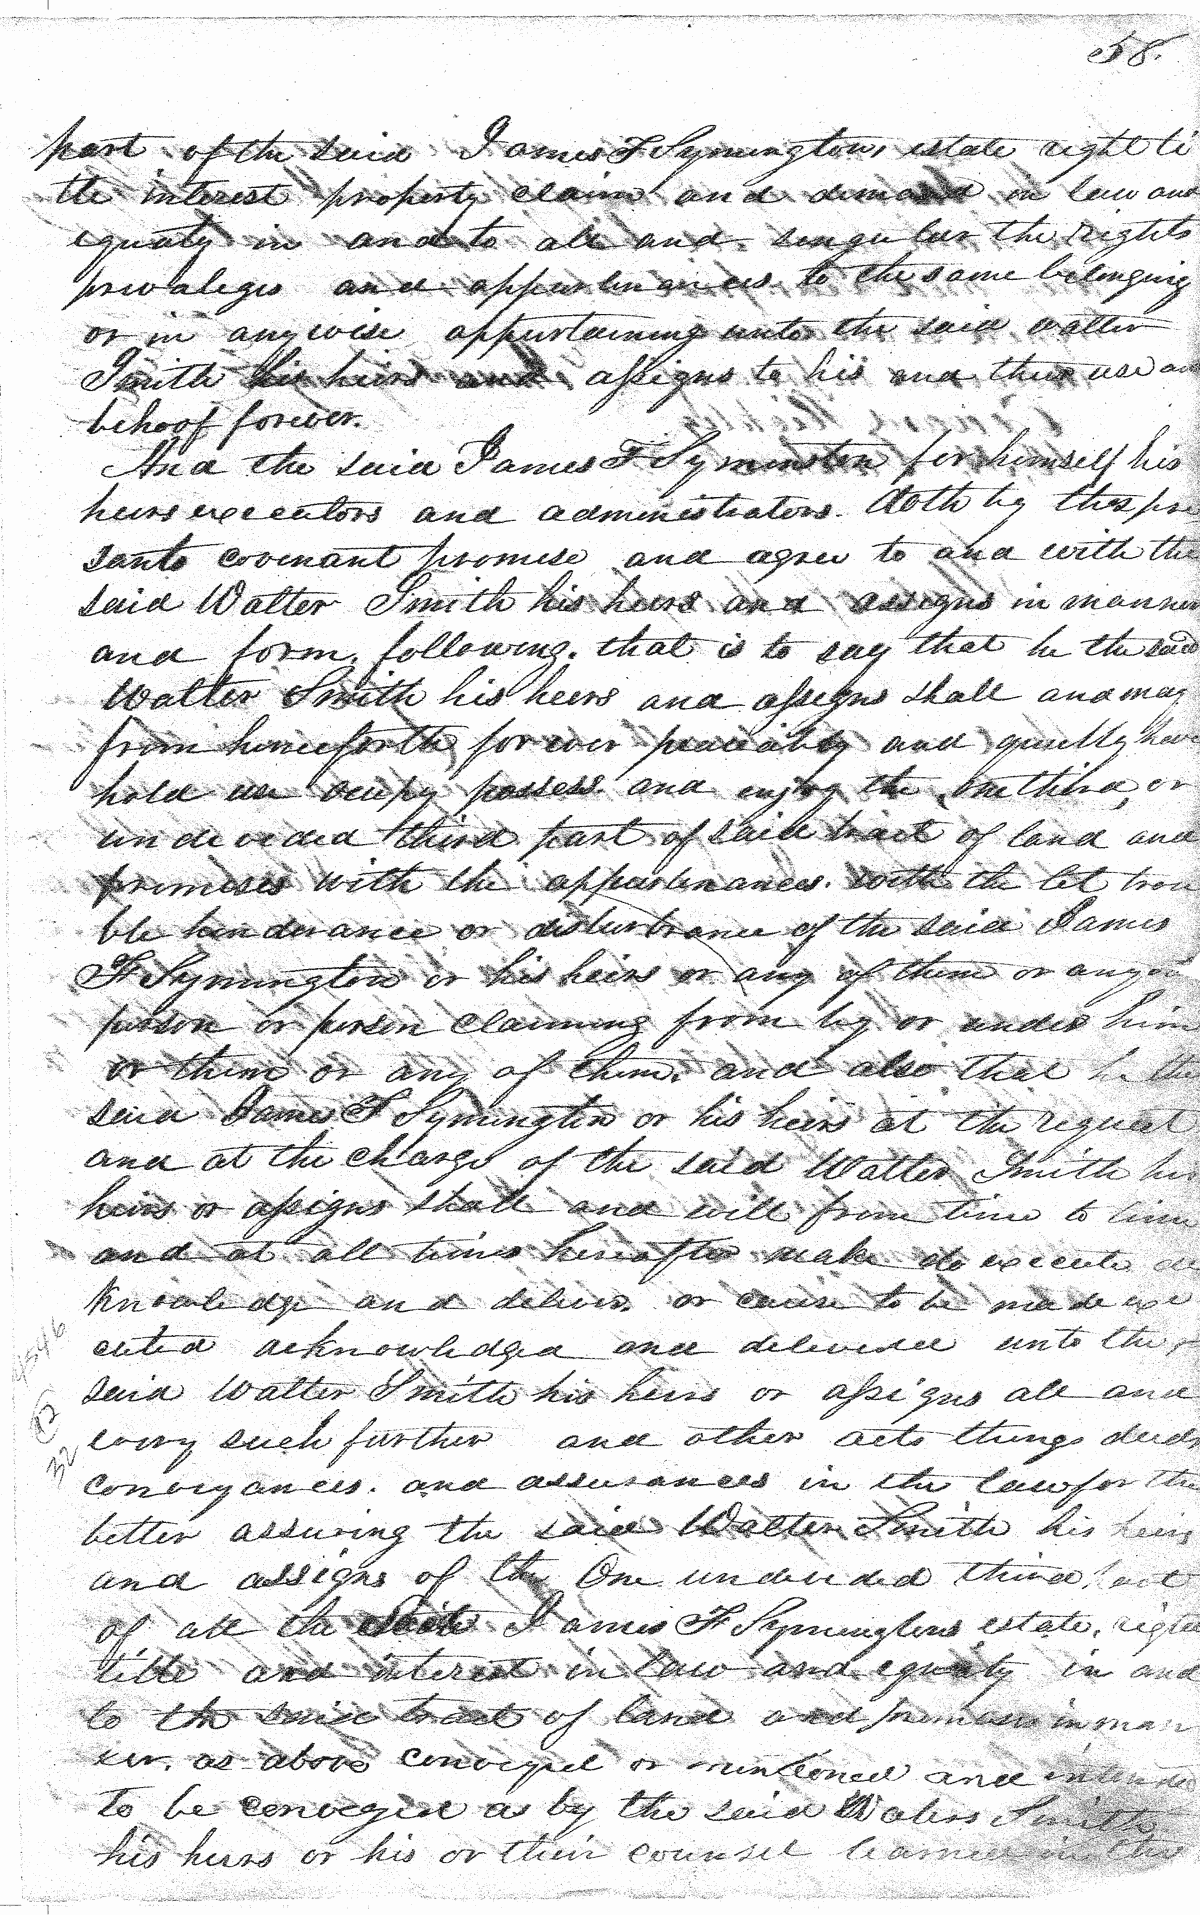 58.
part of the said James F Symingtons estate right ti
tle interest property claim and demand in law and
equaty in and to all and singular the rights
privaleges and appurtenances to the same belonging
or in anywise appurtaining unto the said walter
Smith his heirs and assigns to his and their use an
behoof forever.
And the said James F Symington for himself his
heirs executors and administrators. doth by thes pre
sants covenant promise and agree to and with the
said Walter Smith his heirs and assigns in manner
and form. following. that is to say that he the said
Walter Smith his heirs and assigns shall and may
from henceforth forever peaceably and quietly have
hold use ocupy possess and enjoy the one third, or
undeveded third part of said tract of land and
premises with the appurtenances. with the let trou
ble hinderance or disturbrance of the said James
F Symington or his heirs or any of them or any
person or person claiming from by or under him
or them or any of them. and also that he the
said James F Symington or his heirs at the request
and at the charge of the said Walter Smith his
heirs or assigns shall and will from time to time
and at all times hereafter make do execute ac
knowledge and deliver or cause to be made exe
cuted acknowledged and delivered unto the
said Walter Smith his heirs or assigns all and
every such further and other acts things deeds
conveyances. and assurances in the law for the
better assuring the said Walter Smith his heirs
and assigns of the One undevided third part
of all the said James F Symingtons estate, right
title and interest in law and equaty in and
to the said tract of land and premises in man
ner. as above conveyed or mentioned and intended
to be conveyed as by the said Walter Smith
his heirs or his or their counsel learned in the
4546
12
32